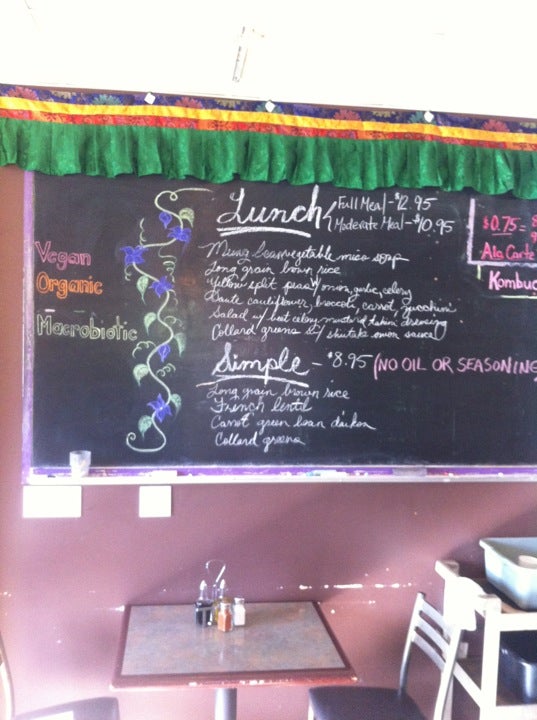 Lunch
Full Meal - $12.95
Moderate Meal - $10.95
Mung bean vegetable miso soup
Long grain brown rice
Yellow split peas w/ onion, garlic, celery
Saute cauliflower, broccoli, carrot, zucchini
Salad w/ beet celery mustard tahini dressing
Collard greens w/ shiitake onion sauce
Simple - $8.95 (NO OIL OR SEASONING
Long grain brown rice
French lentil
Carrot green bean daikon
Collard greens
Vegan
Organic
Macrobiotic
$0.75 =
Ala Carte
Kombuc